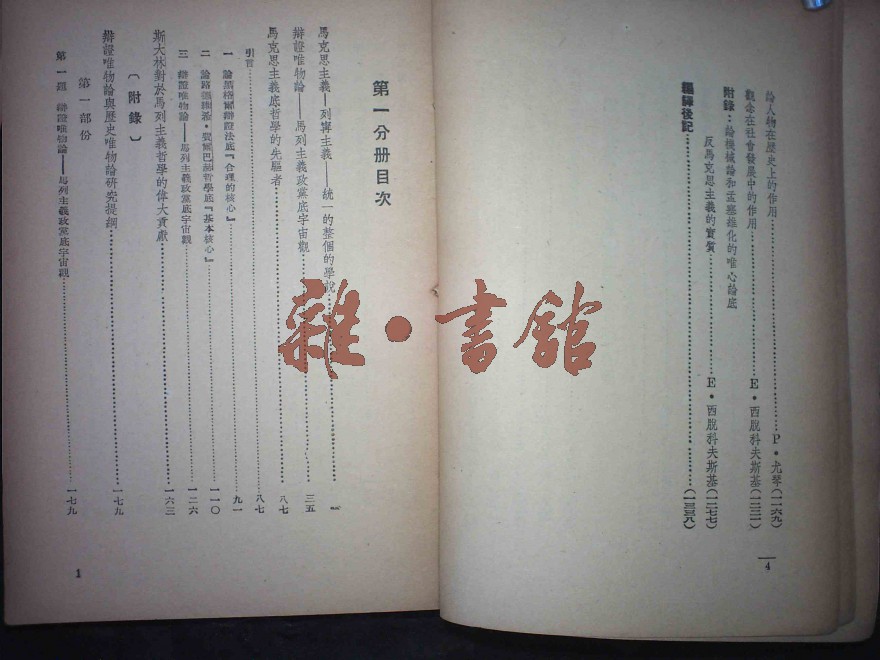 論人物在歷史上的作用……P・尤琴(一一六九)
觀念在社會發展中的作用……E・西脫科夫斯基(一二二一)
附錄：論機械論和孟塞維化的唯心論底
反馬克思主義的實質……E・西脫科夫斯基(一二七七)
編譯後記……(一三三八)
4
第一分册目次
馬克思主義—列寧主義——統一的整個的學說……
辯證唯物論——馬列主義政黨底宇宙觀……三五
馬克思主義底哲學的先驅者……八七
引言……八七
一 論黑格爾辯證法底『合理的核心』……九一
二 論路德維基・費爾巴赫哲學底『基本核心』……一一〇
三 辯證唯物論——馬列主義政黨底宇宙觀……一二六
斯大林對於馬列主義哲學的偉大貢獻……一六三
〔附錄〕
辯證唯物論與歷史唯物論研究提綱……一七九
第一部份
第一題 辯證唯物論——馬列主義政黨底宇宙觀……一七九
1
雜・書館